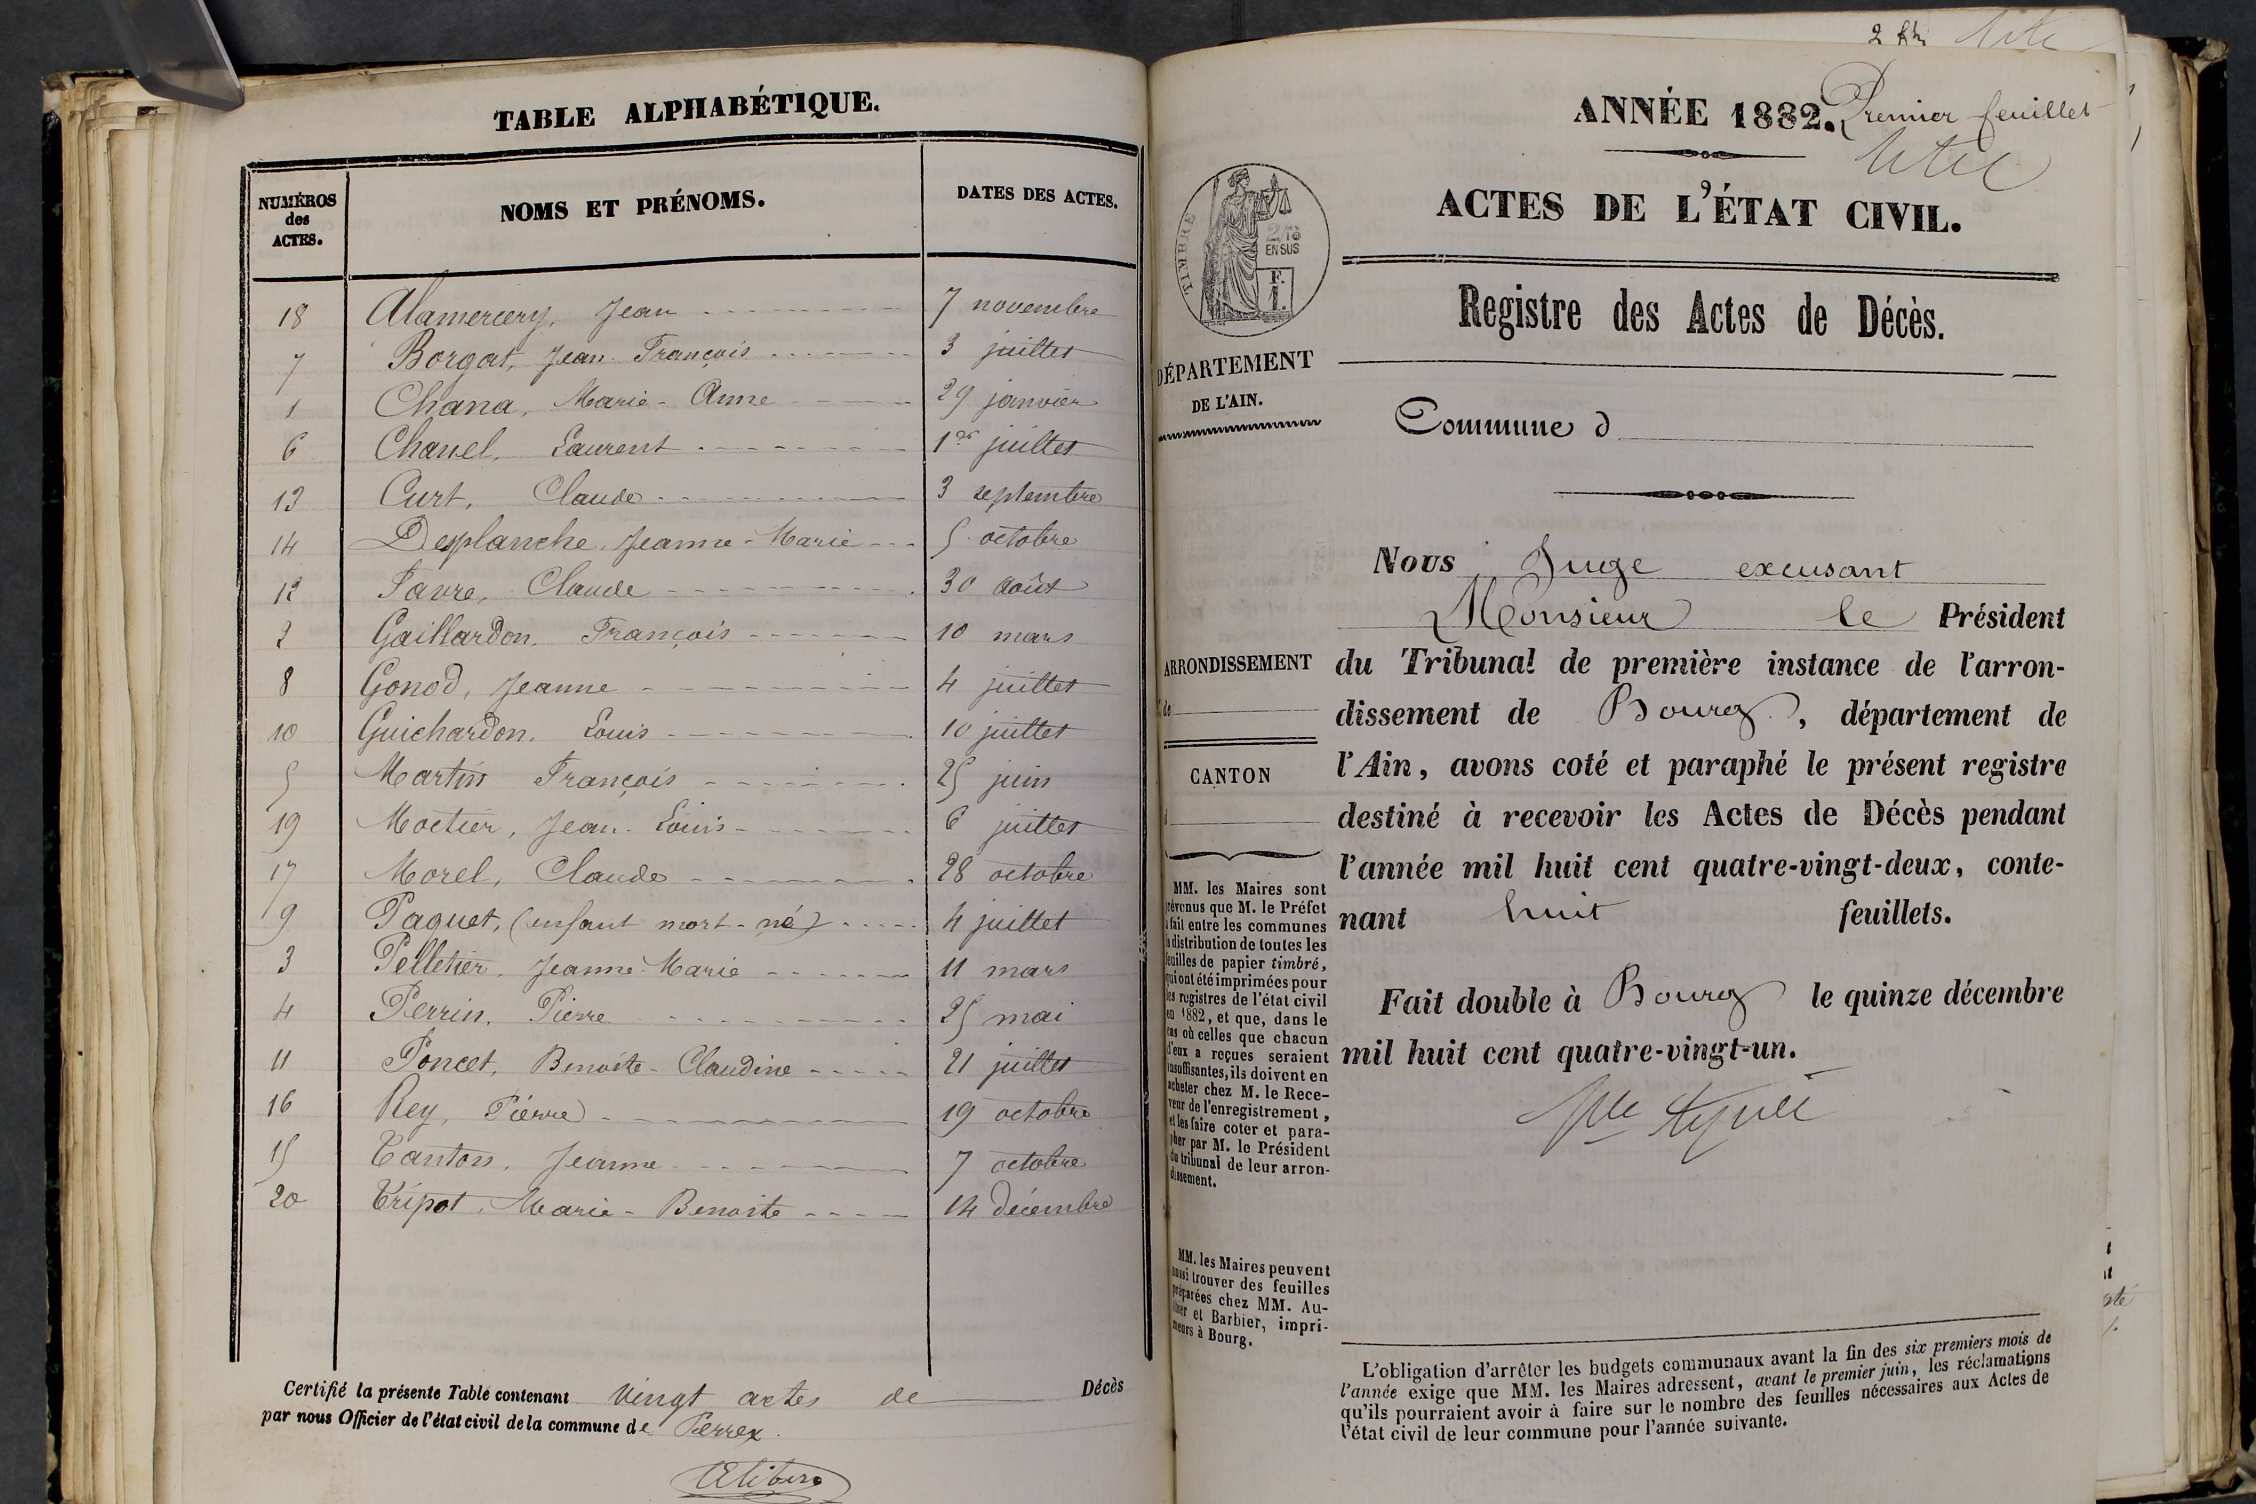 TABLE ALPHABÉTIQUE.
NUMÉROS des ACTES.
NOMS ET PRÉNOMS.
DATES DES ACTES.
18 Alamercery, Jean 7 novembre
7 Borgat, Jean François 3 juillet
1 Chana, Marie-Anne 29 janvier
6 Chanel, Laurent 1er juillet
13 Curt, Claude 3 septembre
14 Desplanche, Jeanne-Marie 5 octobre
12 Favre, Claude 30 août
2 Gaillardon, François 10 mars
8 Gonod, Jeanne 4 juillet
10 Guichardon, Louis 10 juillet
5 Martin François 25 juin
19 Moëtier, Jean-Louis 6 juillet
17 Morel, Claude 28 octobre
9 Paquet, (enfant mort-né) 4 juillet
3 Pelletier, Jeanne Marie 11 mars
4 Perrin, Pierre 25 mai
11 Poncet, Benoite-Claudine 21 juillet
16 Rey, Pierre 19 octobre
15 Tanton, Jeanne 7 octobre
20 Tripot, Marie-Benoite 14 décembre
Certifié la présente Table contenant vingt actes de Décès
par nous Officier de l'état civil de la commune de Perrex.
ANNÉE 1882.
Premier feuillet
ACTES DE L'ÉTAT CIVIL.
TIMBRE
2/10
EN SUS
F.
1.
Registre des Actes de Décès.
DÉPARTEMENT
DE L'AIN.
Commune d
Nous Juge excusant
Monsieur le Président
du Tribunal de première instance de l'arron-
dissement de Bourg, département de
l'Ain, avons coté et paraphé le présent registre
destiné à recevoir les Actes de Décès pendant
l'année mil huit cent quatre-vingt-deux, conte-
nant huit feuillets.
Fait double à Bourg le quinze décembre
mil huit cent quatre-vingt-un.
ARRONDISSEMENT
de
CANTON
d
MM. les Maires sont
prévenus que M. le Préfet
a fait entre les communes
la distribution de toutes les
feuilles de papier timbré,
qui ont été imprimées pour
les registres de l'état civil
en 1882, et que, dans le
cas où celles que chacun
d'eux a reçues seraient
insuffisantes, ils doivent en
acheter chez M. le Rece-
veur de l'enregistrement,
et les faire coter et para-
pher par M. le Président
du tribunal de leur arron-
dissement.
MM. les Maires peuvent
aussi trouver des feuilles
préparées chez MM. Au-
et Barbier, impri-
meurs à Bourg.
L'obligation d'arrêter les budgets communaux avant la fin des six premiers mois de
l'année exige que MM. les Maires adressent, avant le premier juin, les réclamations
qu'ils pourraient avoir à faire sur le nombre des feuilles nécessaires aux Actes de
l'état civil de leur commune pour l'année suivante.